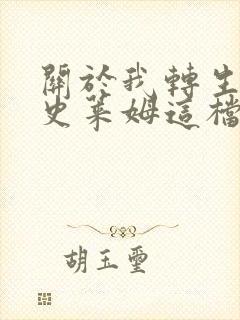 關於我轉生
史萊姆這檔
胡玉璽